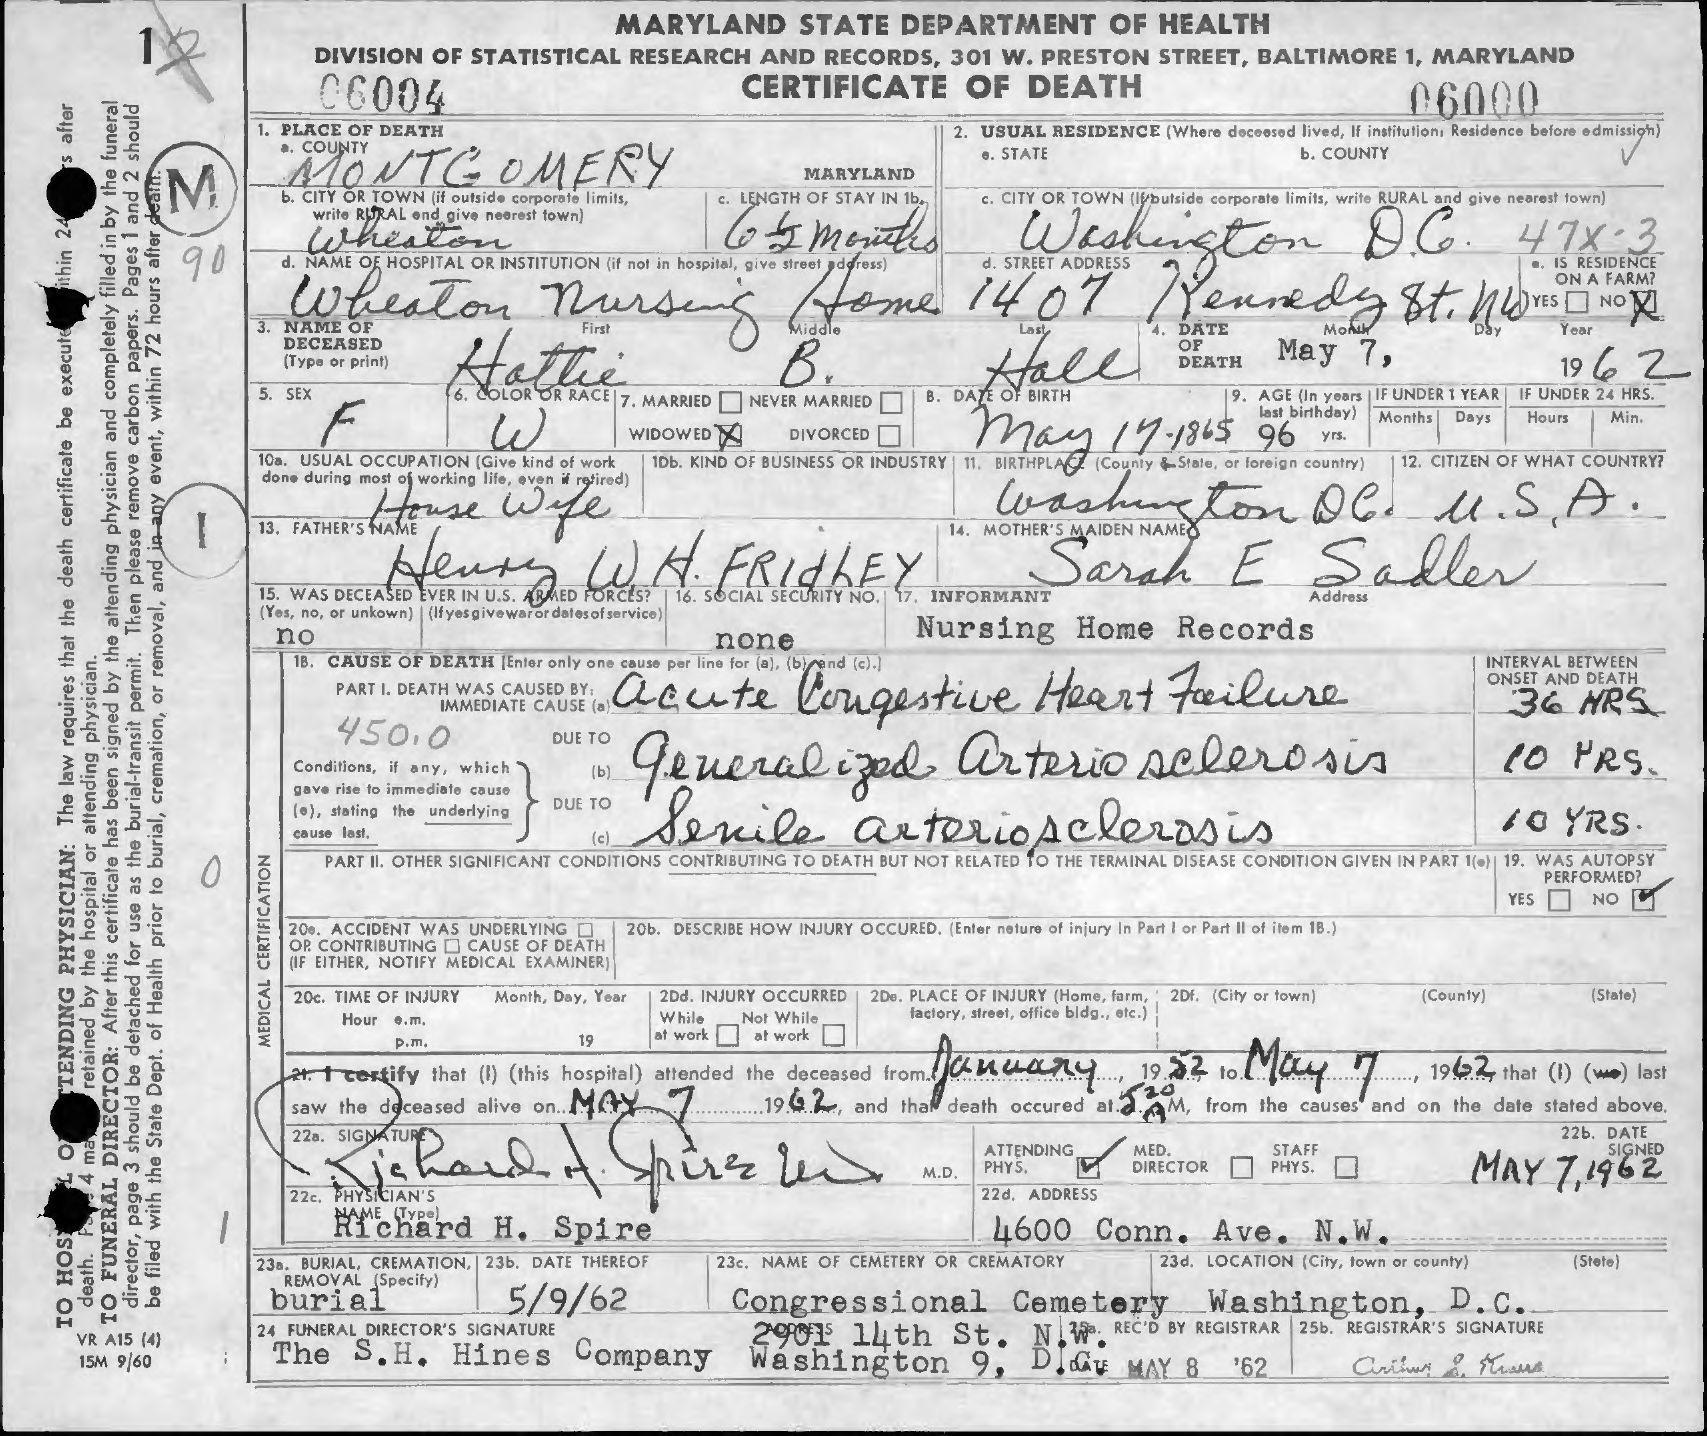 MARYLAND STATE DEPARTMENT OF HEALTH
DIVISION OF STATISTICAL RESEARCH AND RECORDS, 301 W. PRESTON STREET, BALTIMORE 1, MARYLAND
06004 CERTIFICATE OF DEATH 06000
1. PLACE OF DEATH
a. COUNTY
MONTGOMERY MARYLAND
2. USUAL RESIDENCE (Where deceased lived, If institution: Residence before admission)
a. STATE b. COUNTY
b. CITY OR TOWN (if outside corporate limits, write RURAL and give nearest town)
Wheaton
c. LENGTH OF STAY IN 1b.
6 1/2 Months
c. CITY OR TOWN (If outside corporate limits, write RURAL and give nearest town)
Washington D.C. 47X-3
d. NAME OF HOSPITAL OR INSTITUTION (if not in hospital, give street address)
Wheaton Nursing Home
d. STREET ADDRESS
1407 Kennedy St. NW
e. IS RESIDENCE ON A FARM?
YES NO X
3. NAME OF DECEASED (Type or print)
First Middle Last
Hattie B. Hall
4. DATE OF DEATH
Month Day Year
May 7, 1962
5. SEX
F
6. COLOR OR RACE
W
7. MARRIED NEVER MARRIED
WIDOWED X DIVORCED
8. DATE OF BIRTH
May 17-1865
9. AGE (In years last birthday)
96 yrs.
IF UNDER 1 YEAR
Months Days
IF UNDER 24 HRS.
Hours Min.
10a. USUAL OCCUPATION (Give kind of work done during most of working life, even if retired)
House Wife
10b. KIND OF BUSINESS OR INDUSTRY
11. BIRTHPLACE (County & State, or foreign country)
Washington DC.
12. CITIZEN OF WHAT COUNTRY?
U.S.A.
13. FATHER'S NAME
Henry W. H. FRIdLEY
14. MOTHER'S MAIDEN NAME
Sarah E Sadler
15. WAS DECEASED EVER IN U.S. ARMED FORCES?
(Yes, no, or unkown) (If yes give war or dates of service)
no
16. SOCIAL SECURITY NO.
none
17. INFORMANT Address
Nursing Home Records
18. CAUSE OF DEATH [Enter only one cause per line for (a), (b) and (c).]
INTERVAL BETWEEN ONSET AND DEATH
PART I. DEATH WAS CAUSED BY:
IMMEDIATE CAUSE (a) Acute Congestive Heart Failure 36 HRS
450.0
DUE TO
(b) Generalized Arteriosclerosis 10 YRS.
Conditions, if any, which gave rise to immediate cause (a), stating the underlying cause last.
DUE TO
(c) Senile arteriosclerosis 10 YRS.
PART II. OTHER SIGNIFICANT CONDITIONS CONTRIBUTING TO DEATH BUT NOT RELATED TO THE TERMINAL DISEASE CONDITION GIVEN IN PART 1(a)
19. WAS AUTOPSY PERFORMED?
YES NO
MEDICAL CERTIFICATION
20a. ACCIDENT WAS UNDERLYING
OR CONTRIBUTING CAUSE OF DEATH
(IF EITHER, NOTIFY MEDICAL EXAMINER)
20b. DESCRIBE HOW INJURY OCCURED. (Enter nature of injury in Part I or Part II of item 18.)
20c. TIME OF INJURY Month, Day, Year
Hour a.m.
p.m. 19
20d. INJURY OCCURRED
While at work Not While at work
20e. PLACE OF INJURY (Home, farm, factory, street, office bldg., etc.)
20f. (City or town) (County) (State)
21. I certify that (I) (this hospital) attended the deceased from January, 1952 to May 7, 1962, that (I) (we) last
saw the deceased alive on MAY 7 1962, and that death occured at 5:20 AM, from the causes and on the date stated above.
22a. SIGNATURE
Richard H. Spire M.D.
ATTENDING PHYS. MED. DIRECTOR STAFF PHYS.
22b. DATE SIGNED
MAY 7, 1962
22c. PHYSICIAN'S NAME (Type)
Richard H. Spire
22d. ADDRESS
4600 Conn. Ave. N.W.
23a. BURIAL, CREMATION, REMOVAL (Specify)
burial
23b. DATE THEREOF
5/9/62
23c. NAME OF CEMETERY OR CREMATORY
Congressional Cemetery
23d. LOCATION (City, town or county) (State)
Washington, D.C.
24 FUNERAL DIRECTOR'S SIGNATURE
The S.H. Hines Company
ADDRESS
2901 14th St. N.W.
Washington 9, D.C.
25a. REC'D BY REGISTRAR
DATE MAY 8 '62
25b. REGISTRAR'S SIGNATURE
Arthur S. Kraus
1
M
90
1
0
1
director, page 3 should be detached for use as the burial-transit permit. Then please remove carbon papers. Pages 1 and 2 should
be filed with the State Dept. of Health prior to burial, cremation, or removal, and in any event, within 72 hours after death.
TO FUNERAL DIRECTOR: After this certificate has been signed by the attending physician and completely filled in by the funeral
TENDING PHYSICIAN: The law requires that the death certificate be execute
retained by the hospital or attending physician.
VR A15 (4)
15M 9/60